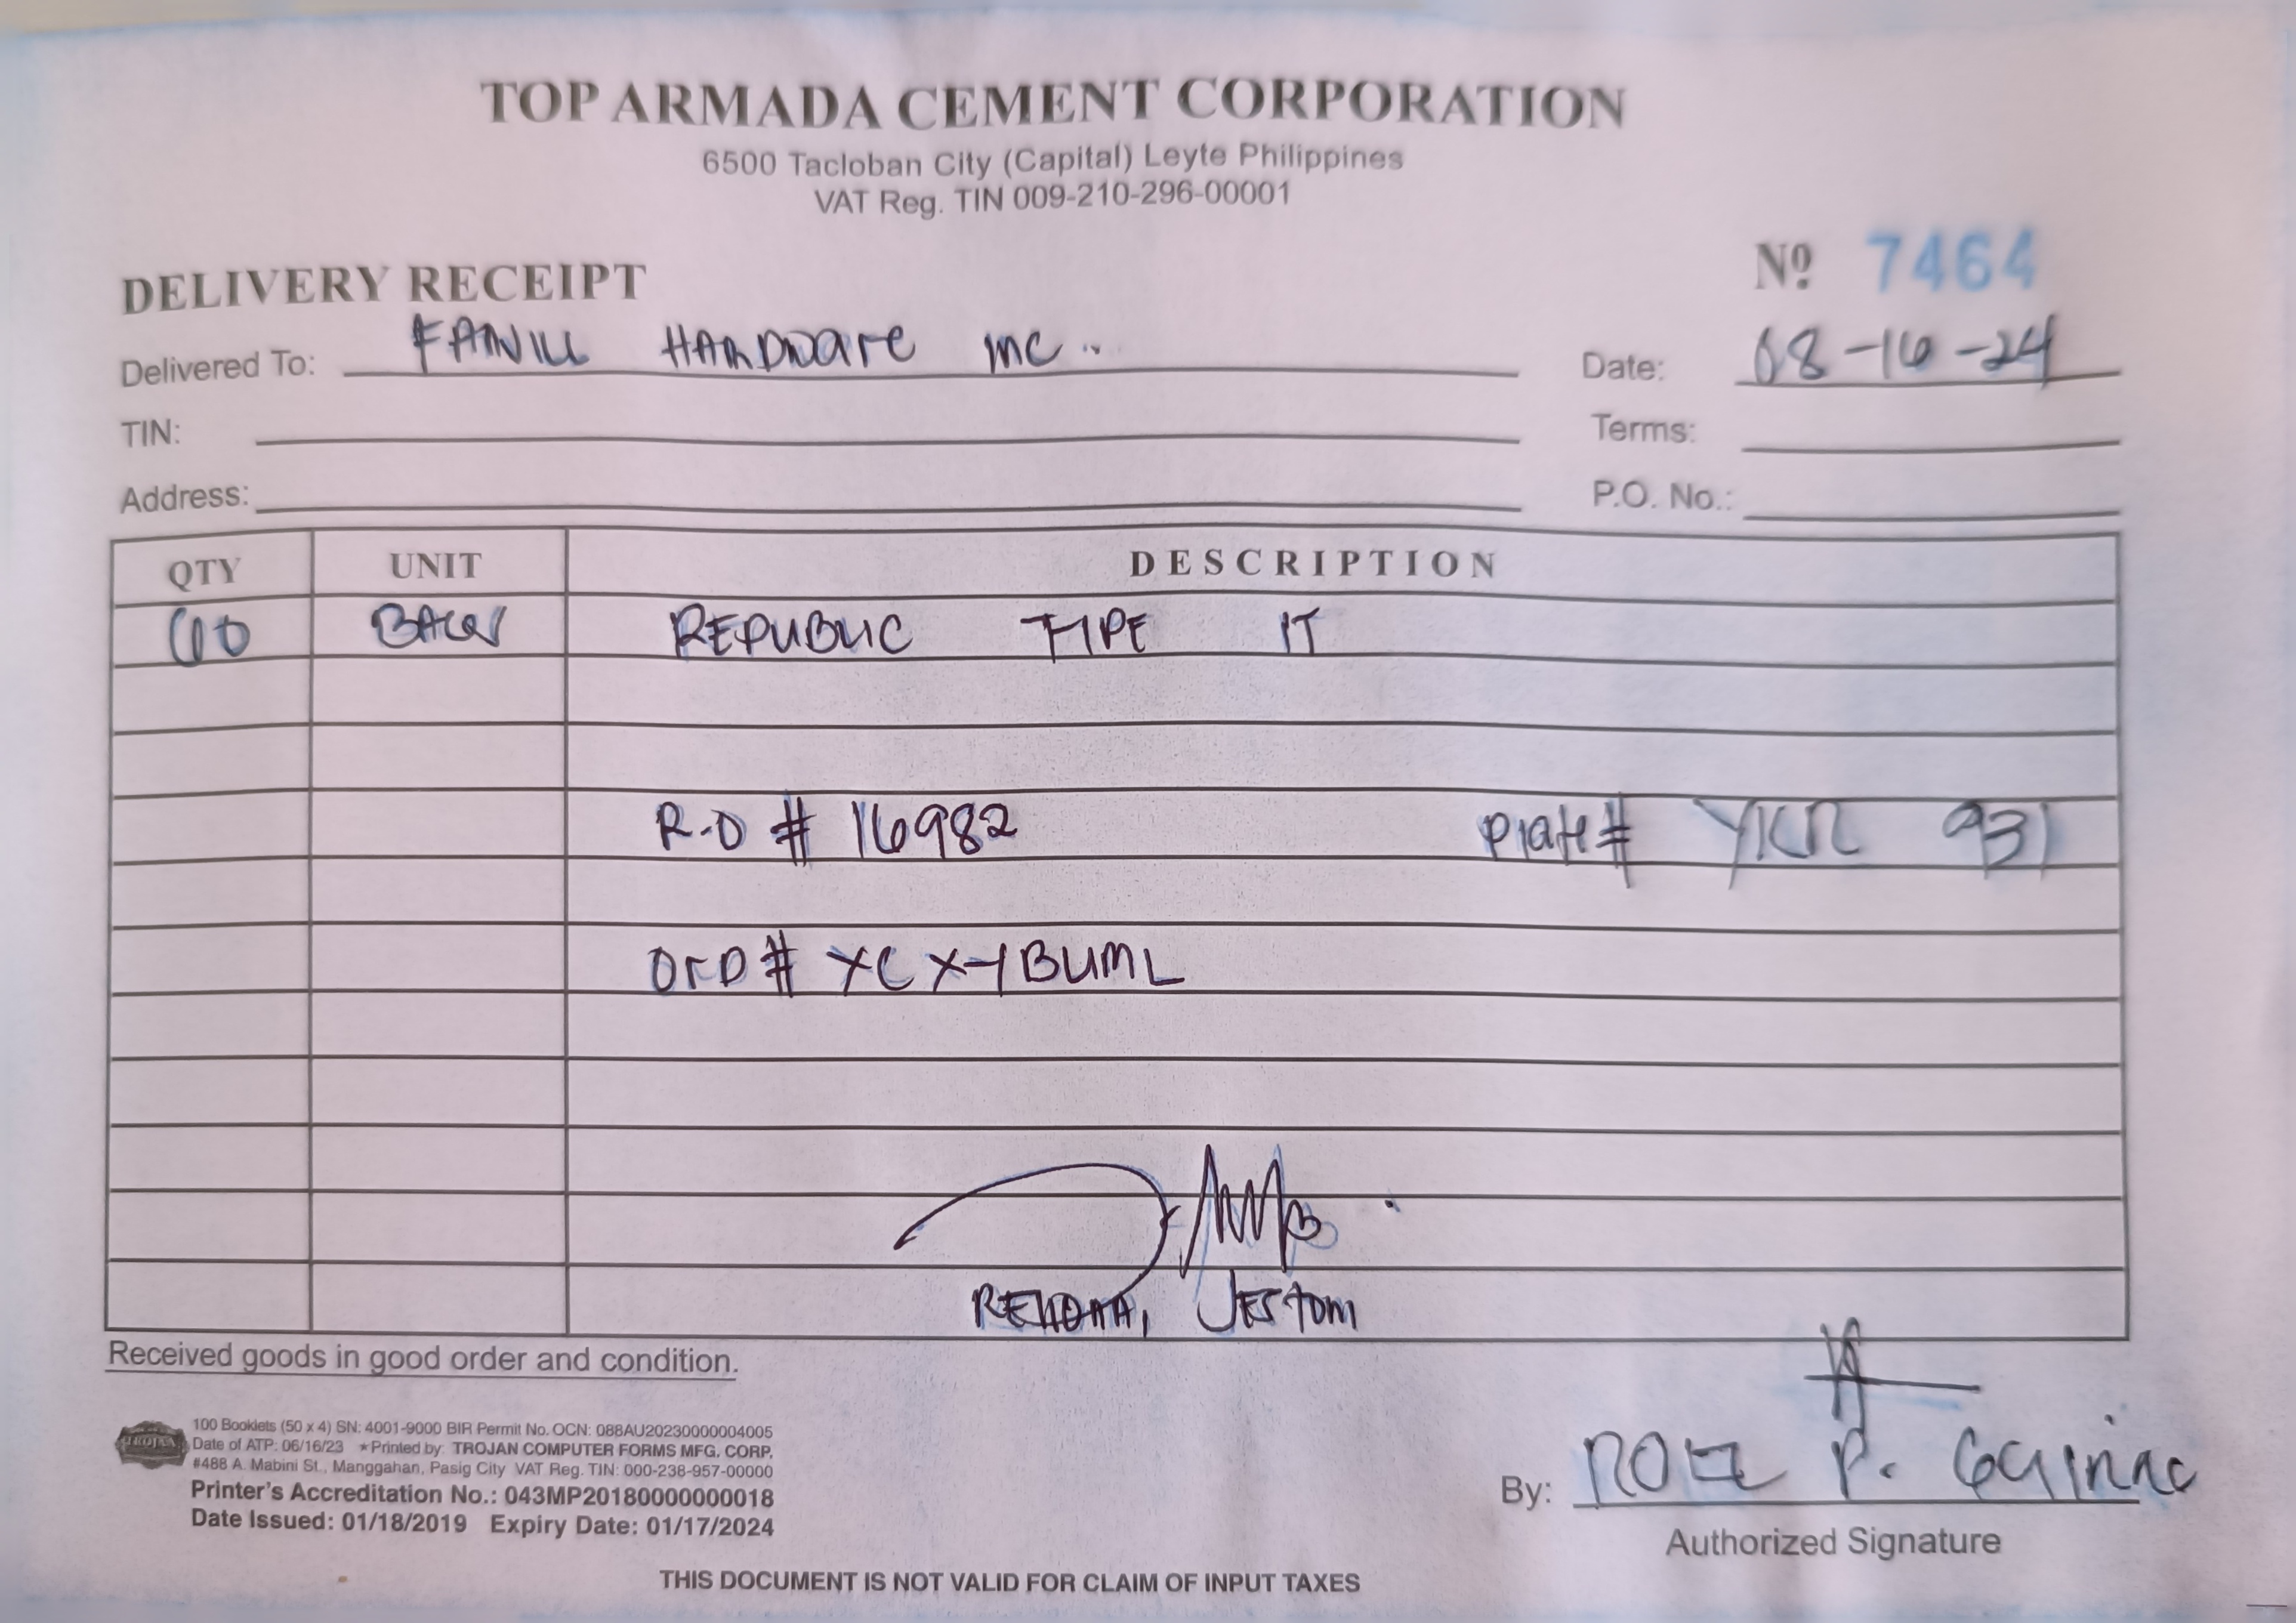 TOP ARMADA CEMENT CORPORATION
6500 Tacloban City (Capital) Leyte Philippines
VAT Reg. TIN 009-210-296-00001
DELIVERY RECEIPT
Nº 7464
Delivered To: FANILL HARDware inc..
Date: 08-16-24
TIN:
Terms:
Address:
P.O. No.:
QTY UNIT DESCRIPTION
60 BAGS REPUBLIC TYPE 1T
R.O # 16982 Plate# YKR 931
OrD # YCXYBUML
Jestom
Received goods in good order and condition.
TROJAN
100 Booklets (50 x 4) SN: 4001-9000 BIR Permit No. OCN: 088AU20230000004005
Date of ATP: 06/16/23 ★Printed by: TROJAN COMPUTER FORMS MFG. CORP.
#488 A. Mabini St., Manggahan, Pasig City VAT Reg. TIN: 000-238-957-00000
Printer's Accreditation No.: 043MP20180000000018
Date Issued: 01/18/2019 Expiry Date: 01/17/2024
By: P.
Authorized Signature
THIS DOCUMENT IS NOT VALID FOR CLAIM OF INPUT TAXES